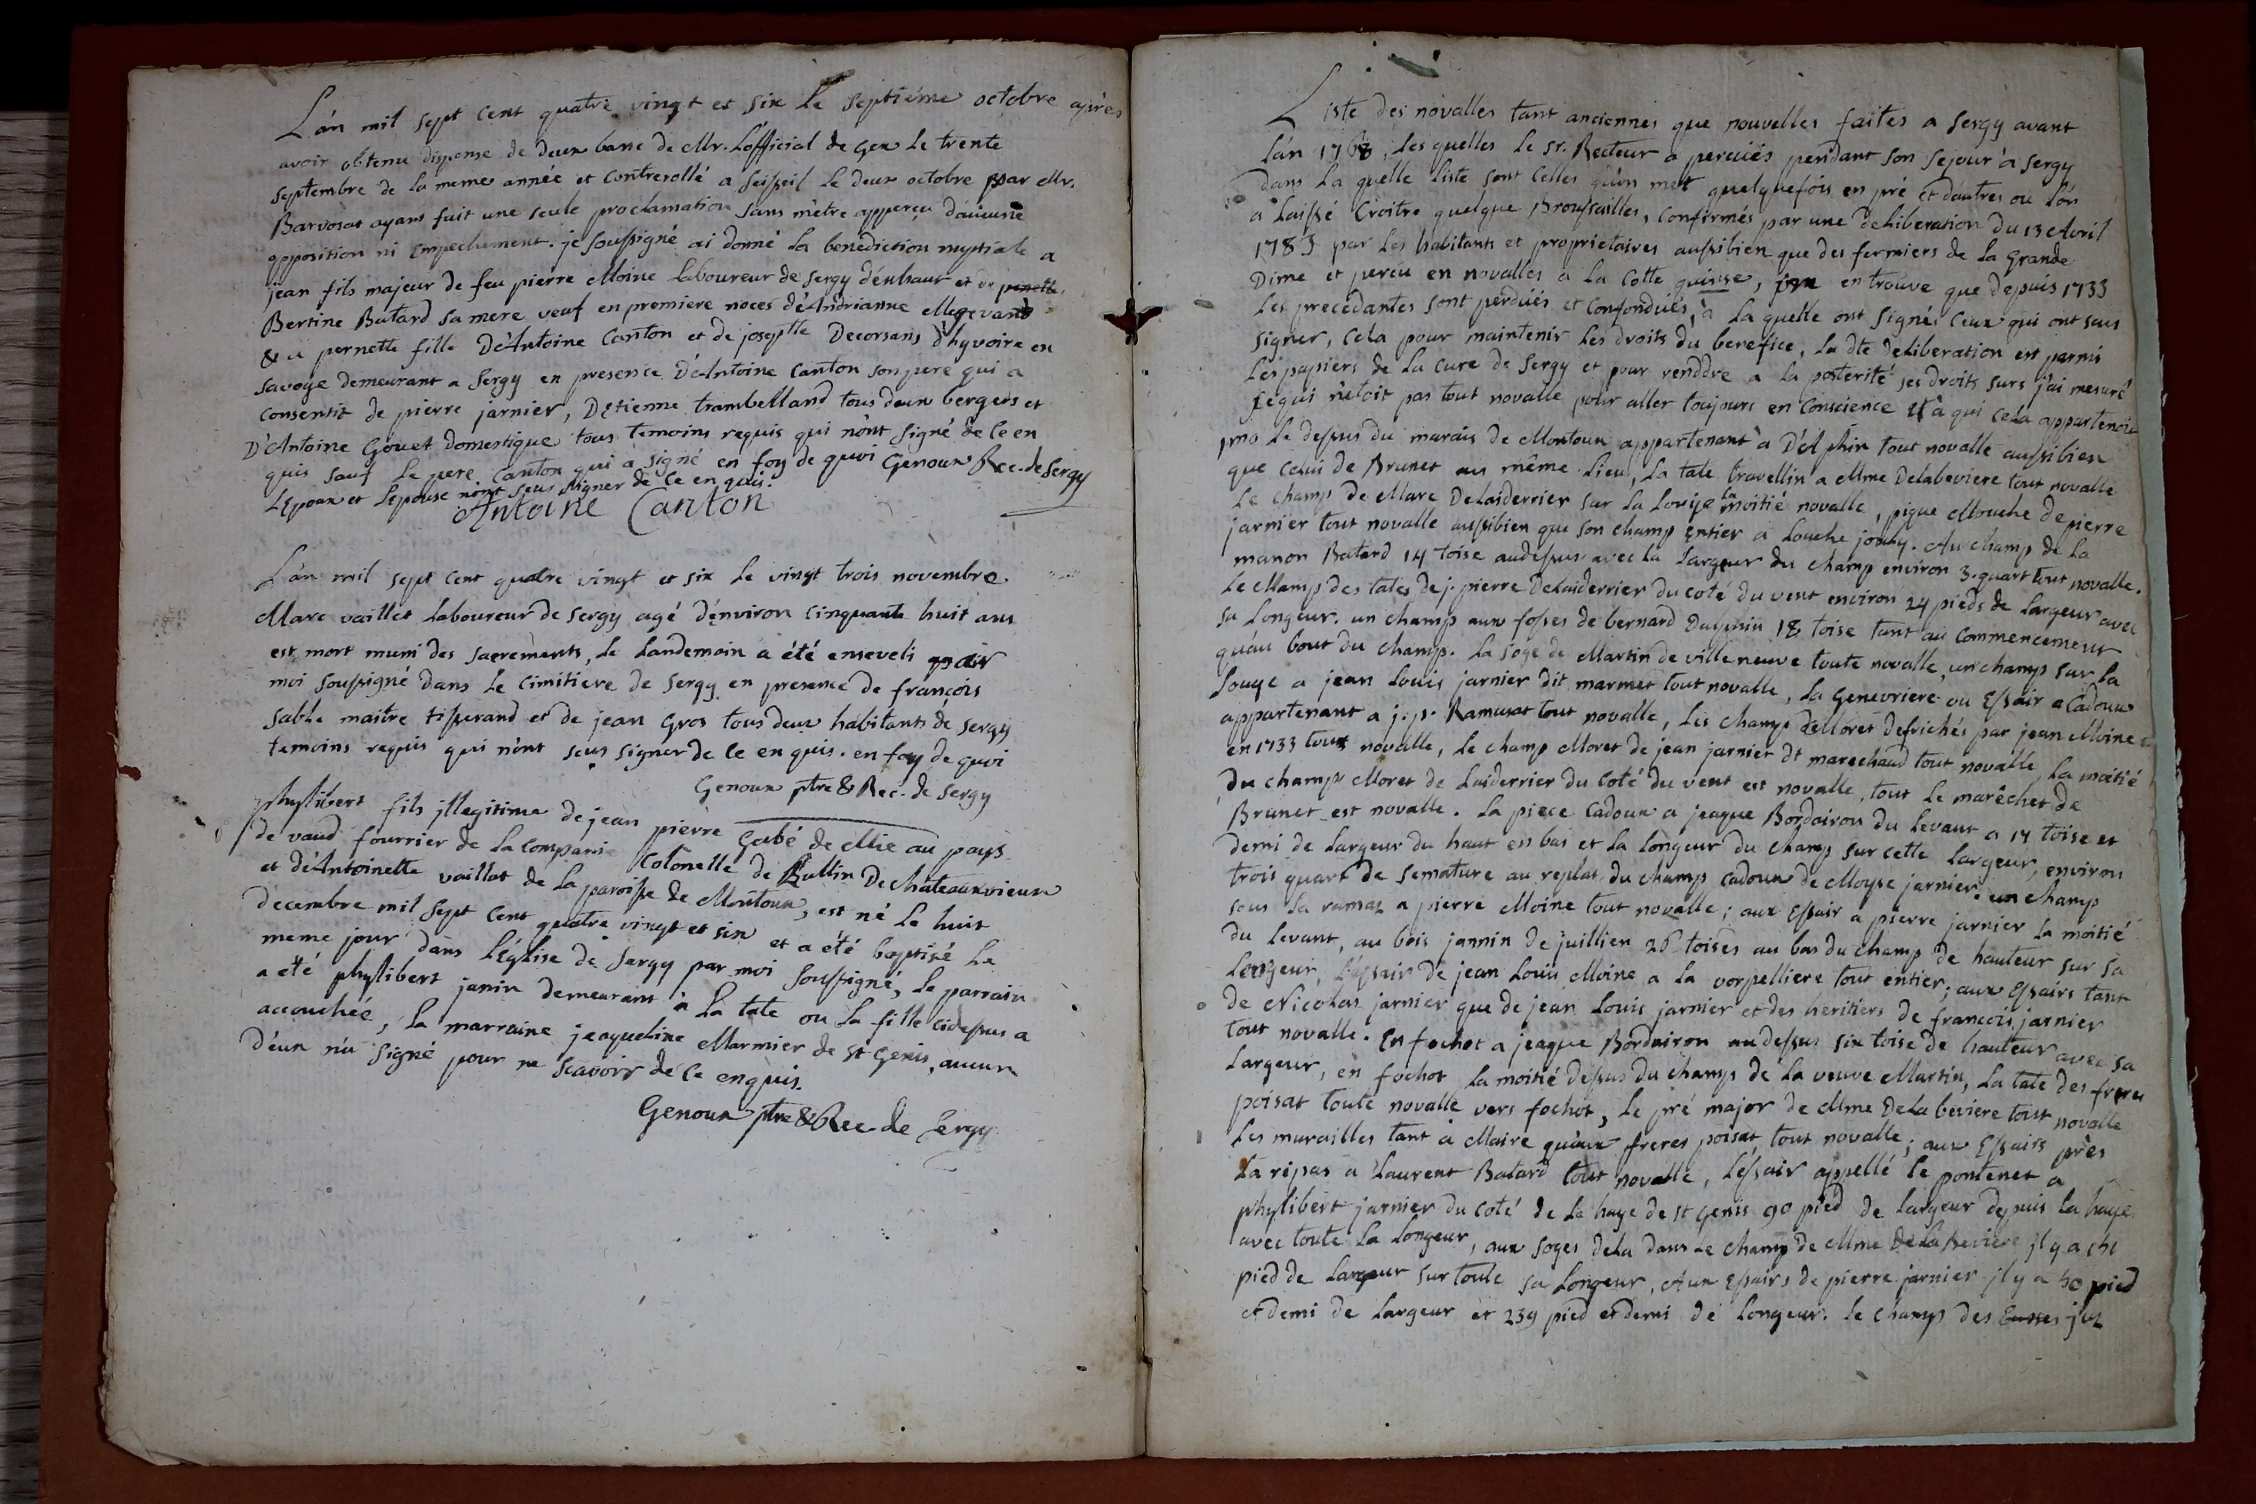 L'an mil sept cent quatre vingt et six le septiéme octobre après
avoir obtenu dispense de deux bans de Mr. L'official de Gex le trente
septembre de la meme année et contrerollé a Seisseil le deux octobre par Mr.
Barvosat ayans fait une seule proclamation sans m'etre apperçu d'aucune
opposition ni empechement. je soussigné ai donné la benediction nuptiale a
jean fils majeur de feu pierre Moine laboureur de Sergy d'enhaut et de
Bertine Batard sa mere veuf en premiere noces d'Andrianne Megevand
& a pernette fille D'Antoine Canton et de josephte Decorsans d'hyvoire en
savoye demeurant a Sergy en presence D'Antoine Canton son pere qui a
consentit de pierre jarnier, D'etienne trambelland tous deux bergers et
D'Antoine Gouet domestique tous temoins requis qui n'ont signé de ce en
quis sauf le pere Canton qui a signé en foy de quoi Genoux Rec. de Sergy
L'epoux et l'epouse n'ont seus signer de ce en quis.
Antoine Canton
L'an mil sept cent quatre vingt et six le vingt trois novembre
Marc vaillet laboureur de Sergy agé d'environ cinquante huit ans
est mort muni des sacréments, le landemain a été enseveli par
moi soussigné dans le cimitiere de Sergy en presence de françois
Sable maitre tisserand et de jean Gros tous deux habitants de Sergy
temoins requis qui n'ont seus signer de ce en quis. en foy de quoi
Genoux ptre & Rec. de Sergy
phylibert fils illegitime de jean pierre Gabé de Mie au pays
de vaud fourrier de la compani Colonelle de Rullin De chateauxvieux
et d'Antoinette vaillat de la paroisse de Moutoux, est né le huit
decembre mil sept cent quatre vingt et six et a été baptisé le
meme jour dans l'église de Sergy par moi soussigné, le parrain
a été phylibert janin demeurant à la tate ou la fille cidessus a
accouchée, la marraine jeaqueline Marmier de St Genis, aucun
d'eux n'a signé pour ne scavoir de ce enquis.
Genoux ptre & Rec de Sergy
Liste des novalles tant anciennes que nouvelles faites a Sergy avant
l'an 1768, les quelles le Sr. Recteur a percüés pendant son sejour à Sergy
dans la quelle liste sont celles qu'on met quelquefois en pré et d'autres ou l'on
a laissé croitre quelque Broussailles, confirmés par une deliberation du 13 Avril
1783 par les habitants et proprietaires aussibien que des fermiers de la Grande
Dime et percu en novalles a la cotte quinse, en trouve que depuis 1733
les precedantes sont perdués et confondués, à la quelle ont signés ceux qui ont seus
signer, cela pour maintenir les droits du benefice, la dte deliberation est parmi
les papiers de la cure de Sergy et pour rendre a la posterité ses droits surs j'ai mesuré
ce qui n'etoit pas tout novalle pour aller toujours en conscience et à qui cela appartenoit
pmo le dessus du marais de Moutoux appartenant à Délphin tout novalle aussibien
que celui de Brunet au même lieu, la tate travellin a Mme Delabeviere tout novalle
le champ de Marc Delaiderrier sur la Louye la moitié novalle, pique Mouche de pierre
jarnier tout novalle aussibien que son champ entier a Louche jouly. Au champ de la
manon Batard 14 toise audessus avec la largeur du champ environ 3. quart tout novalle.
Le Champ des tates de j. pierre Delaiderrier du coté du vent environ 24 pieds de largeur avec
sa longeur. un champ aux fosses de bernard Dauphin 18 toise tant au commencement
qu'au bout du champ. la soge de Martin de ville neuve toute novalle, un champ sur la
souge a jean louis jarnier dit marmet tout novalle, la Genevriere ou Essair a Cadoux
appartenant a j. p. Ramusat tout novalle, les champ de Moret defrichés par jean Moine
en 1733 tout novalle, le champ Moret de jean jarnier dt marechaud tout novalle, la moitié
du champ Moret de Laiderrier du coté du vent est novalle, tout le marêchet de
Brunet est novalle. La piece Cadoux a jeaque Bordairon du levant a 14 toise et
demi de largeur du haut en bas et la longeur du champ sur cette largeur, environ
trois quart de semature au replat du champ Cadoux de Moyse jarnier. un champ
sous la ramaz a pierre Moine tout novalle; aux Essair a pierre jarnier la moitié
du levant, au bois jannin de juillien 26 toises au bas du champ de hauteur sur sa
largeur, L'essair de jean Louis Moine a la vorpelliere tout entier; aux Essairs tant
de Nicolas jarnier que de jean Louis jarnier et des heritiers de francois jarnier
tout novalle. En fochot a jeaque Bordairon audessus six toise de hauteur avec sa
largeur, en fochot la moitié dessus du champ de la veuve Martin, la tate des freres
poisat toute novalle vers fochot, le pré major de Mme Dela beviere tout novalle
les murailles tant à Maire qu'aux freres poisat tout novalle; aux Essairs près
la ripas a Laurent Batard tout novalle, L'éssair appellé le pontenet a
phylibert jarnier du coté de la haye de St Genis 90 pied de largeur depuis la haye
avec toute la longeur, aux soges dela dans le champ de Mme de la Beviere il y a
pied de largeur sur toute sa longeur, Aux Essairs de pierre jarnier il y a 50 pied
et demi de largeur et 239 pied et demi de longeur. le champ des